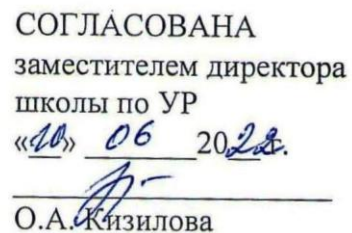 СОГЛАСОВАНА
заместителем директора
школы по УР
«10» 06 2022г.
О.А. Кизилова